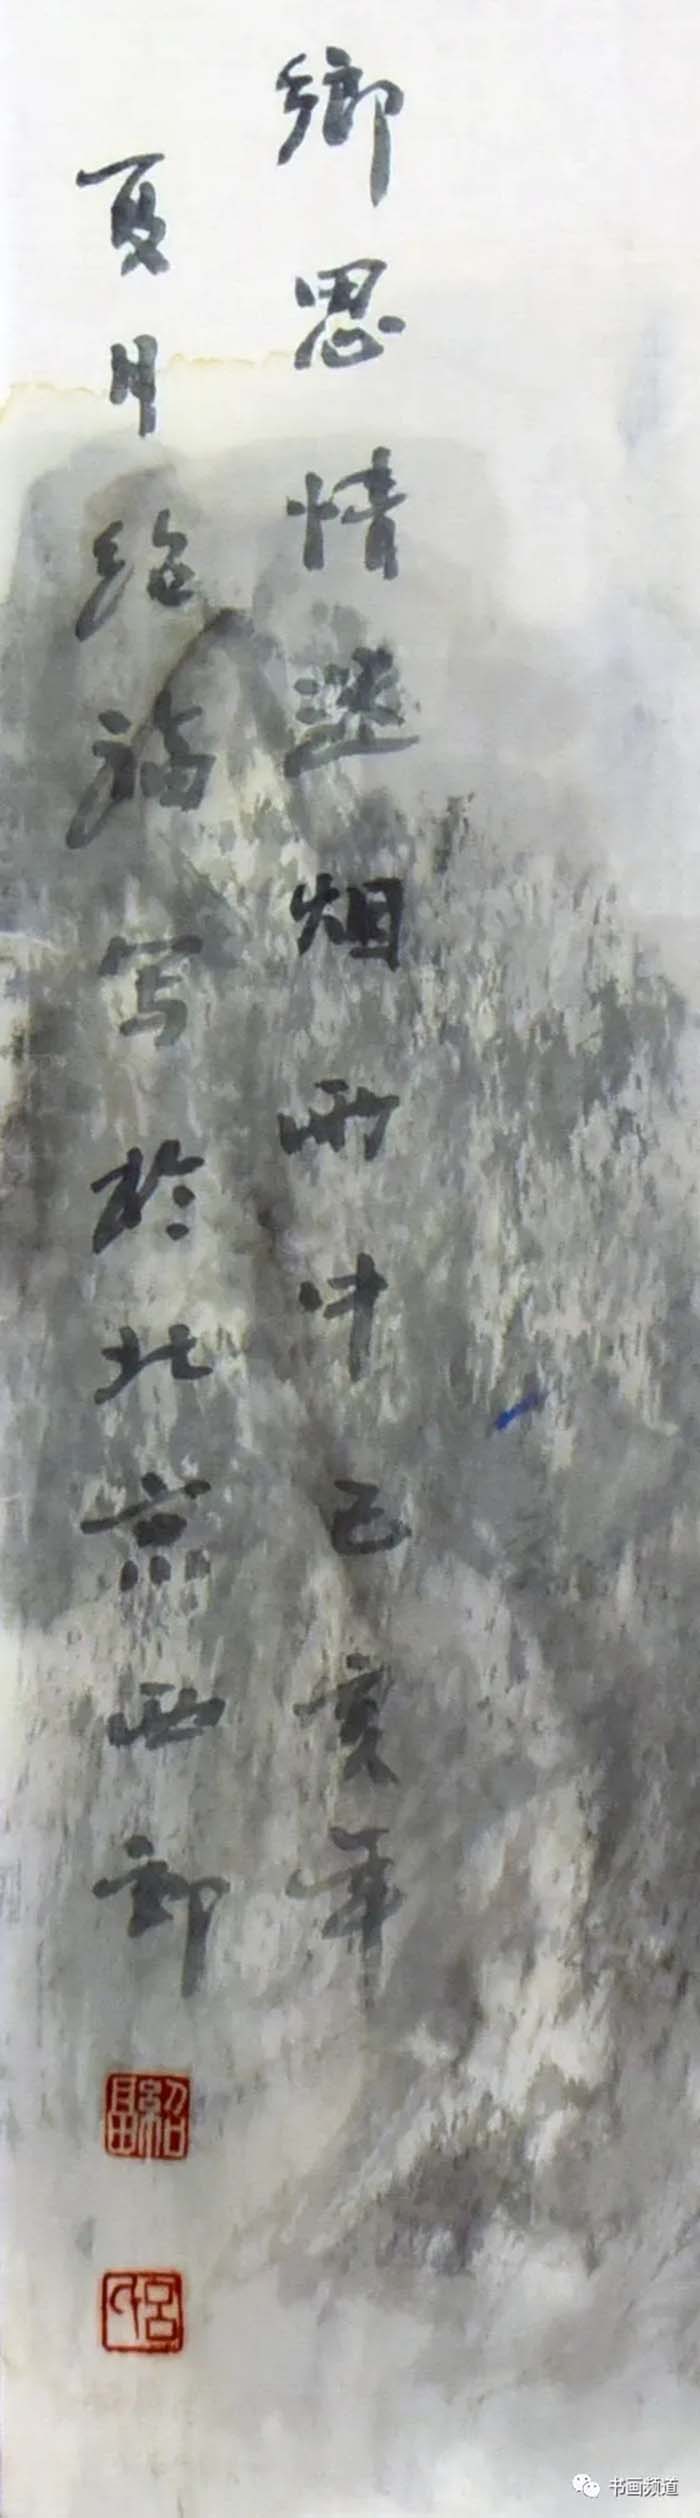 鄉思情迷烟雨中己亥年
夏月绍福写於北京西郊
书画频道